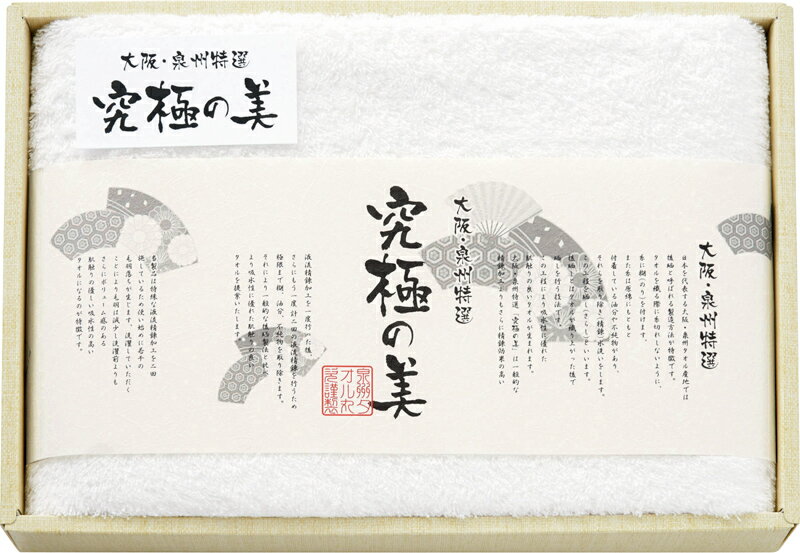 大阪・泉州特選
究極の美
大阪・泉州特選
日本を代表する大阪・泉州タオル産地では
後晒しと呼ばれる製造方法が特徴です。
タオルを織る際に糸切れしないように、
糸に糊(のり)を付けます。
また糸は原綿にもともと
付着している油分や不純物があり、
それらを取り除き(精練)水洗いをします。
この工程を晒し(さらし)といいます。
後晒しとはタオルを織り上がった後で
晒しを行う技法です。
この工程により吸水性に優れた
肌触りの良いタオルが生まれます。
大阪・泉州特選「究極の美」は一般的な
精練加工よりもさらに精錬効果の高い
大阪・泉州特選
究極の美
泉州タ
オル丸
謹製
液流精錬加工を一度行った後、
さらにもう一度計二回の液流精錬を行うため
極限まで糊、油分、不純物を取り除きます。
それにより一般的な後晒製法と比べ、
より吸水性に優れた肌触りの良い
タオルを提案いたします。
本製品は特殊な液流精錬加工を二回
施しているため使い始めに若干の
毛羽落ちが生じます。洗濯していただく
ことにより毛羽は減少し洗濯前よりも
さらにボリューム感のある
肌触りの優しい吸水性の高い
タオルになるのが特徴です。